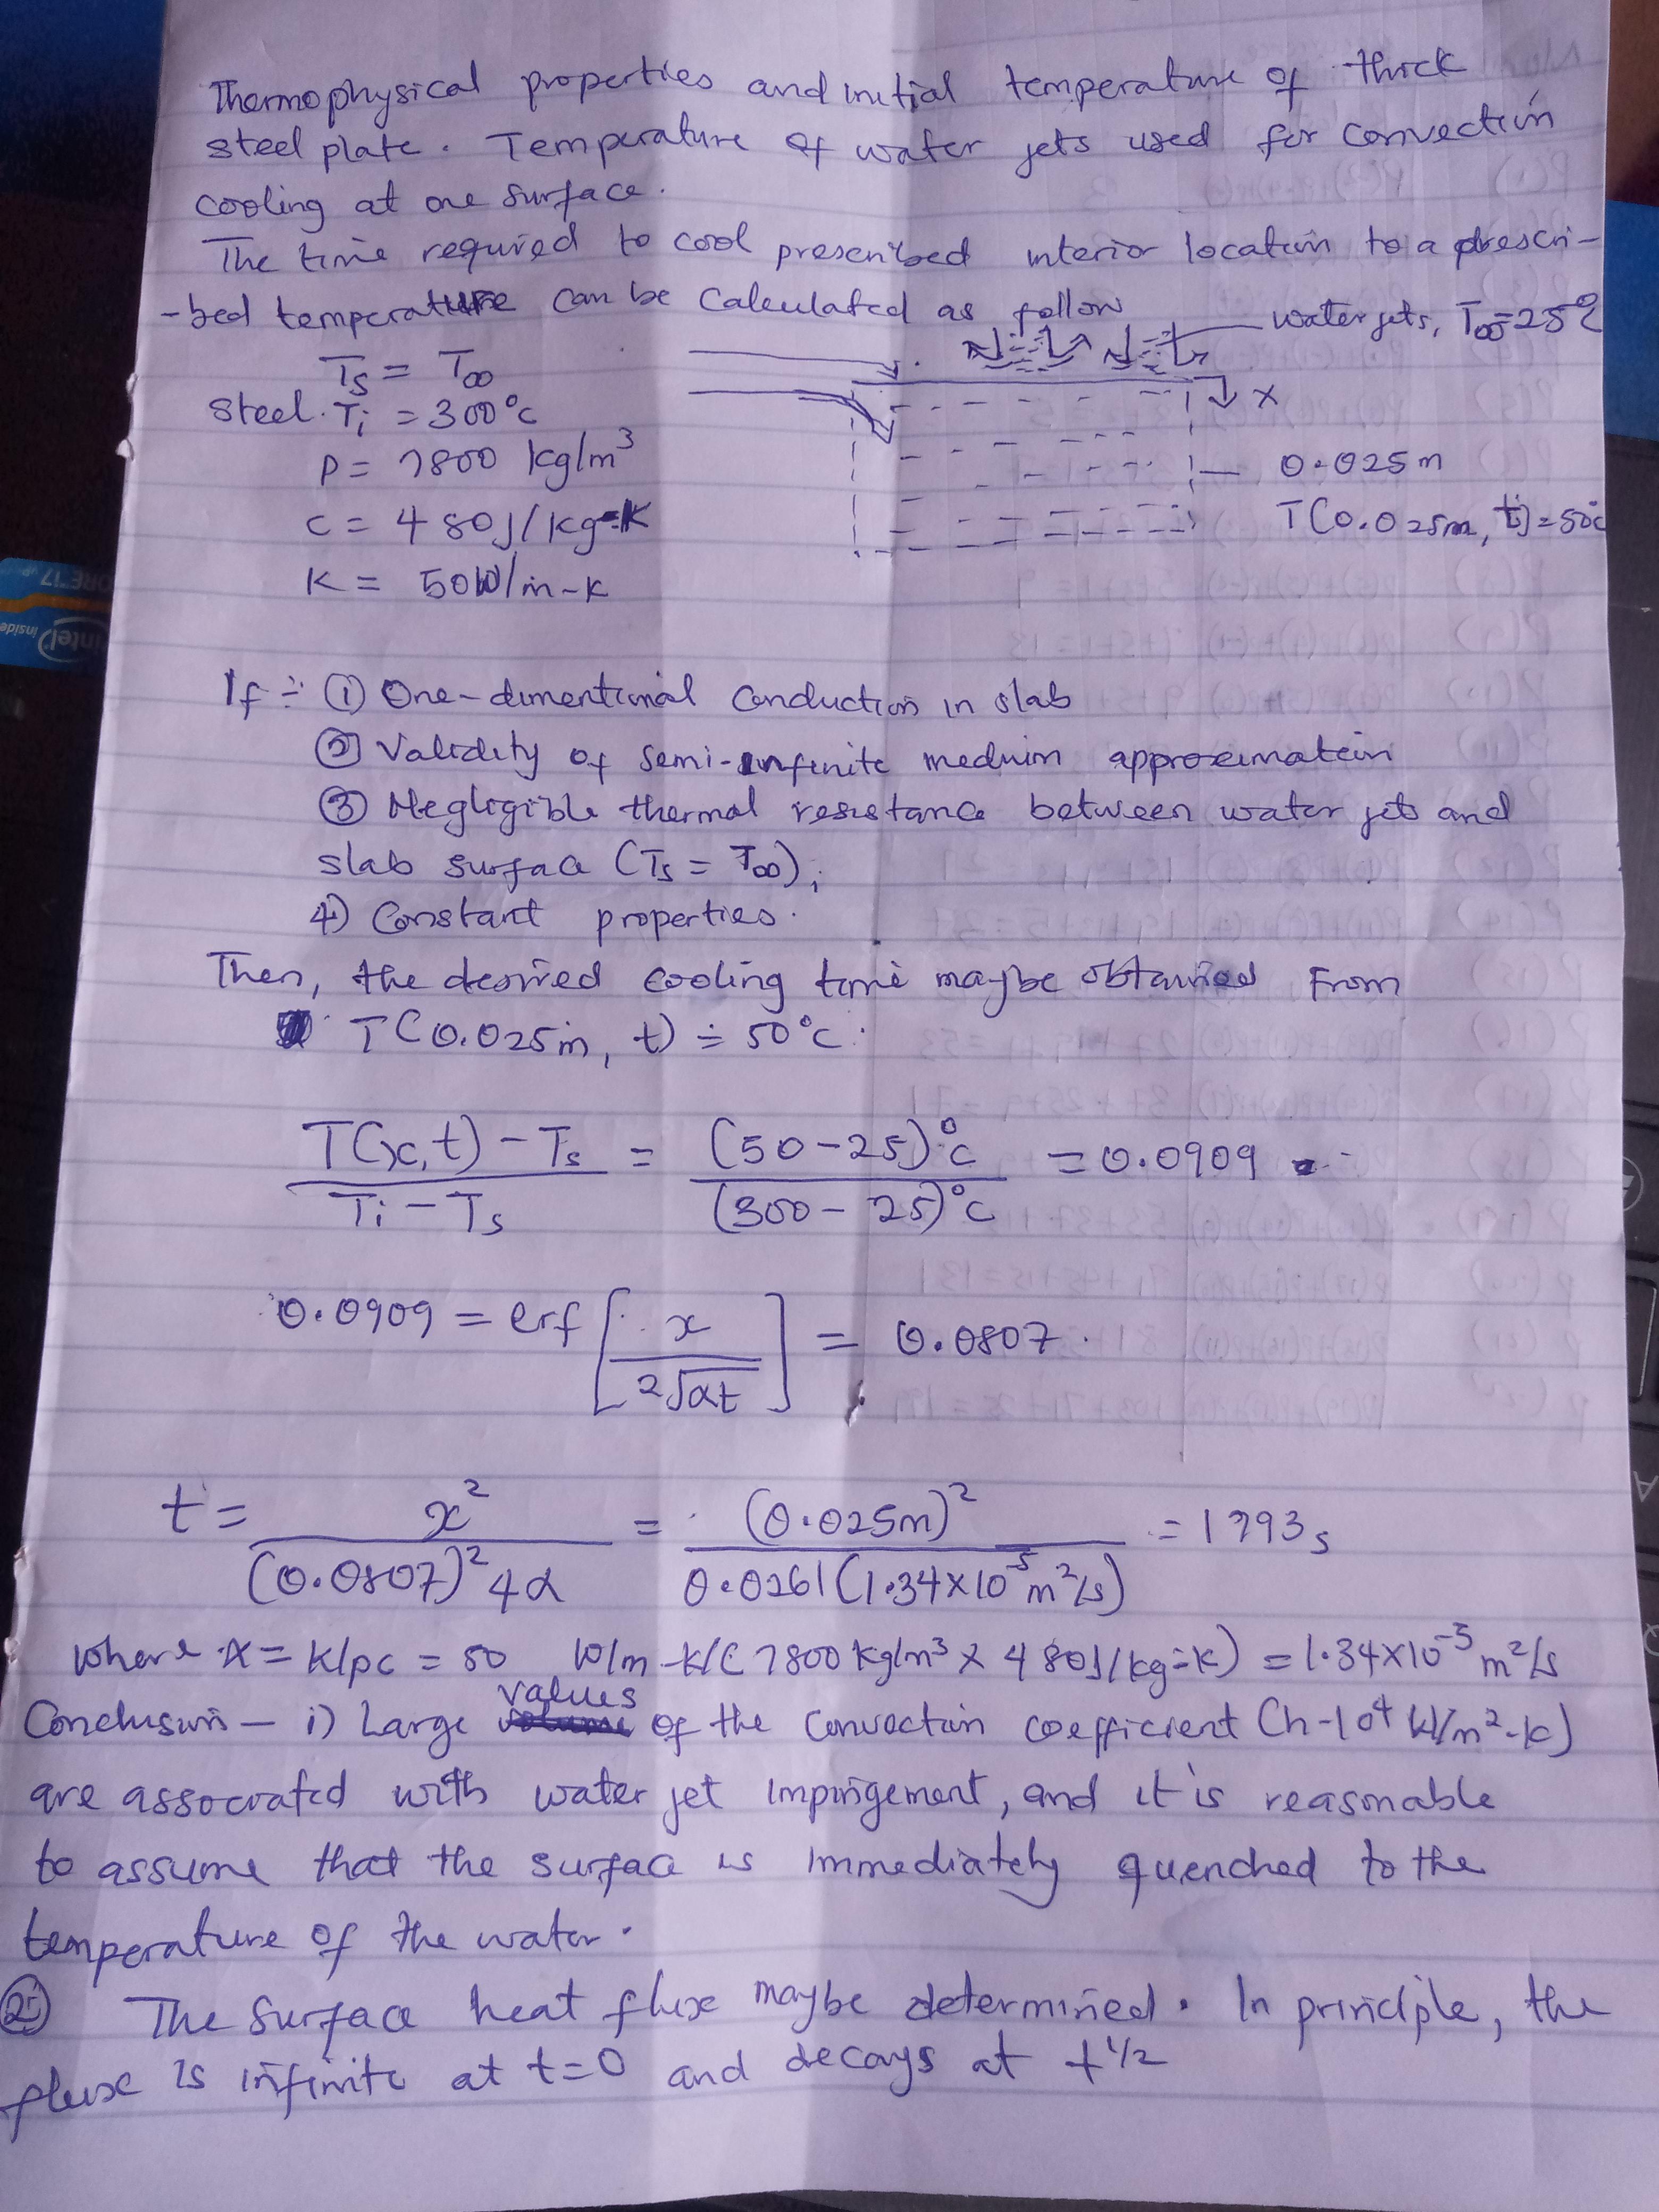 Thermophysical properties and initial temperature of thick
steel plate. Temperature of water jets used for convection
cooling at one surface.
The time required to cool prescribed interior location to a prescri-
-bed temperature can be calculated as follow
water jets, T∞=25°C
Ts = T∞
Steel. Ti = 300°C
x
ρ = 7800 kg/m³
0.025m
c = 480J/kg-K
T(0.025m, t)=50°C
K = 50W/m-K
If ÷ ① One-dimentional conduction in slab
② Validity of semi-infinite medium approximation
③ Negligible thermal resistance between water jets and
slab surface (Ts = T∞);
4) Constant properties.
Then, the desired cooling time maybe obtained From
T(0.025m, t) = 50°C.
T(x,t) - Ts / Ti - Ts = (50-25)°C / (300-25)°C = 0.0909
0.0909 = erf [x / 2√αt] = 0.0807.
t = x² / (0.0807)² 4α = (0.025m)² / 0.0261(1.34×10⁻⁵ m²/s) = 1793s
where α = k/ρc = 50 W/m-K/(7800 kg/m³ × 480J/kg-K) = 1.34×10⁻⁵ m²/s
values
Conclusion - i) Large of the convection coefficient (h-10⁴ W/m²-K)
are associated with water jet impingement, and it is reasonable
to assume that the surface is immediately quenched to the
temperature of the water.
② The surface heat fluxe maybe determined. In principle, the
fluxe is infinite at t=0 and decays at t^1/2
intel inside
CORE i7